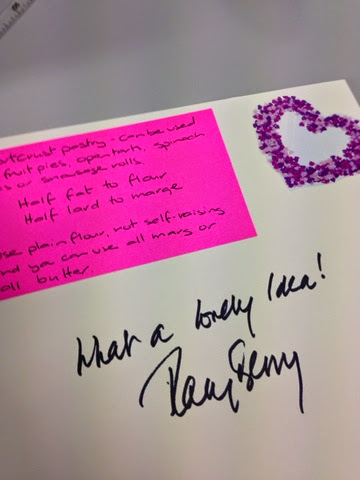 pastry - can be used
fruit pies, open tart, spinach
or sausage rolls.
Half fat to flour
Half lard to marge
plain flour, not self-raising
you can use all marg or
all butter.
What a lovely Idea!
Mary Berry